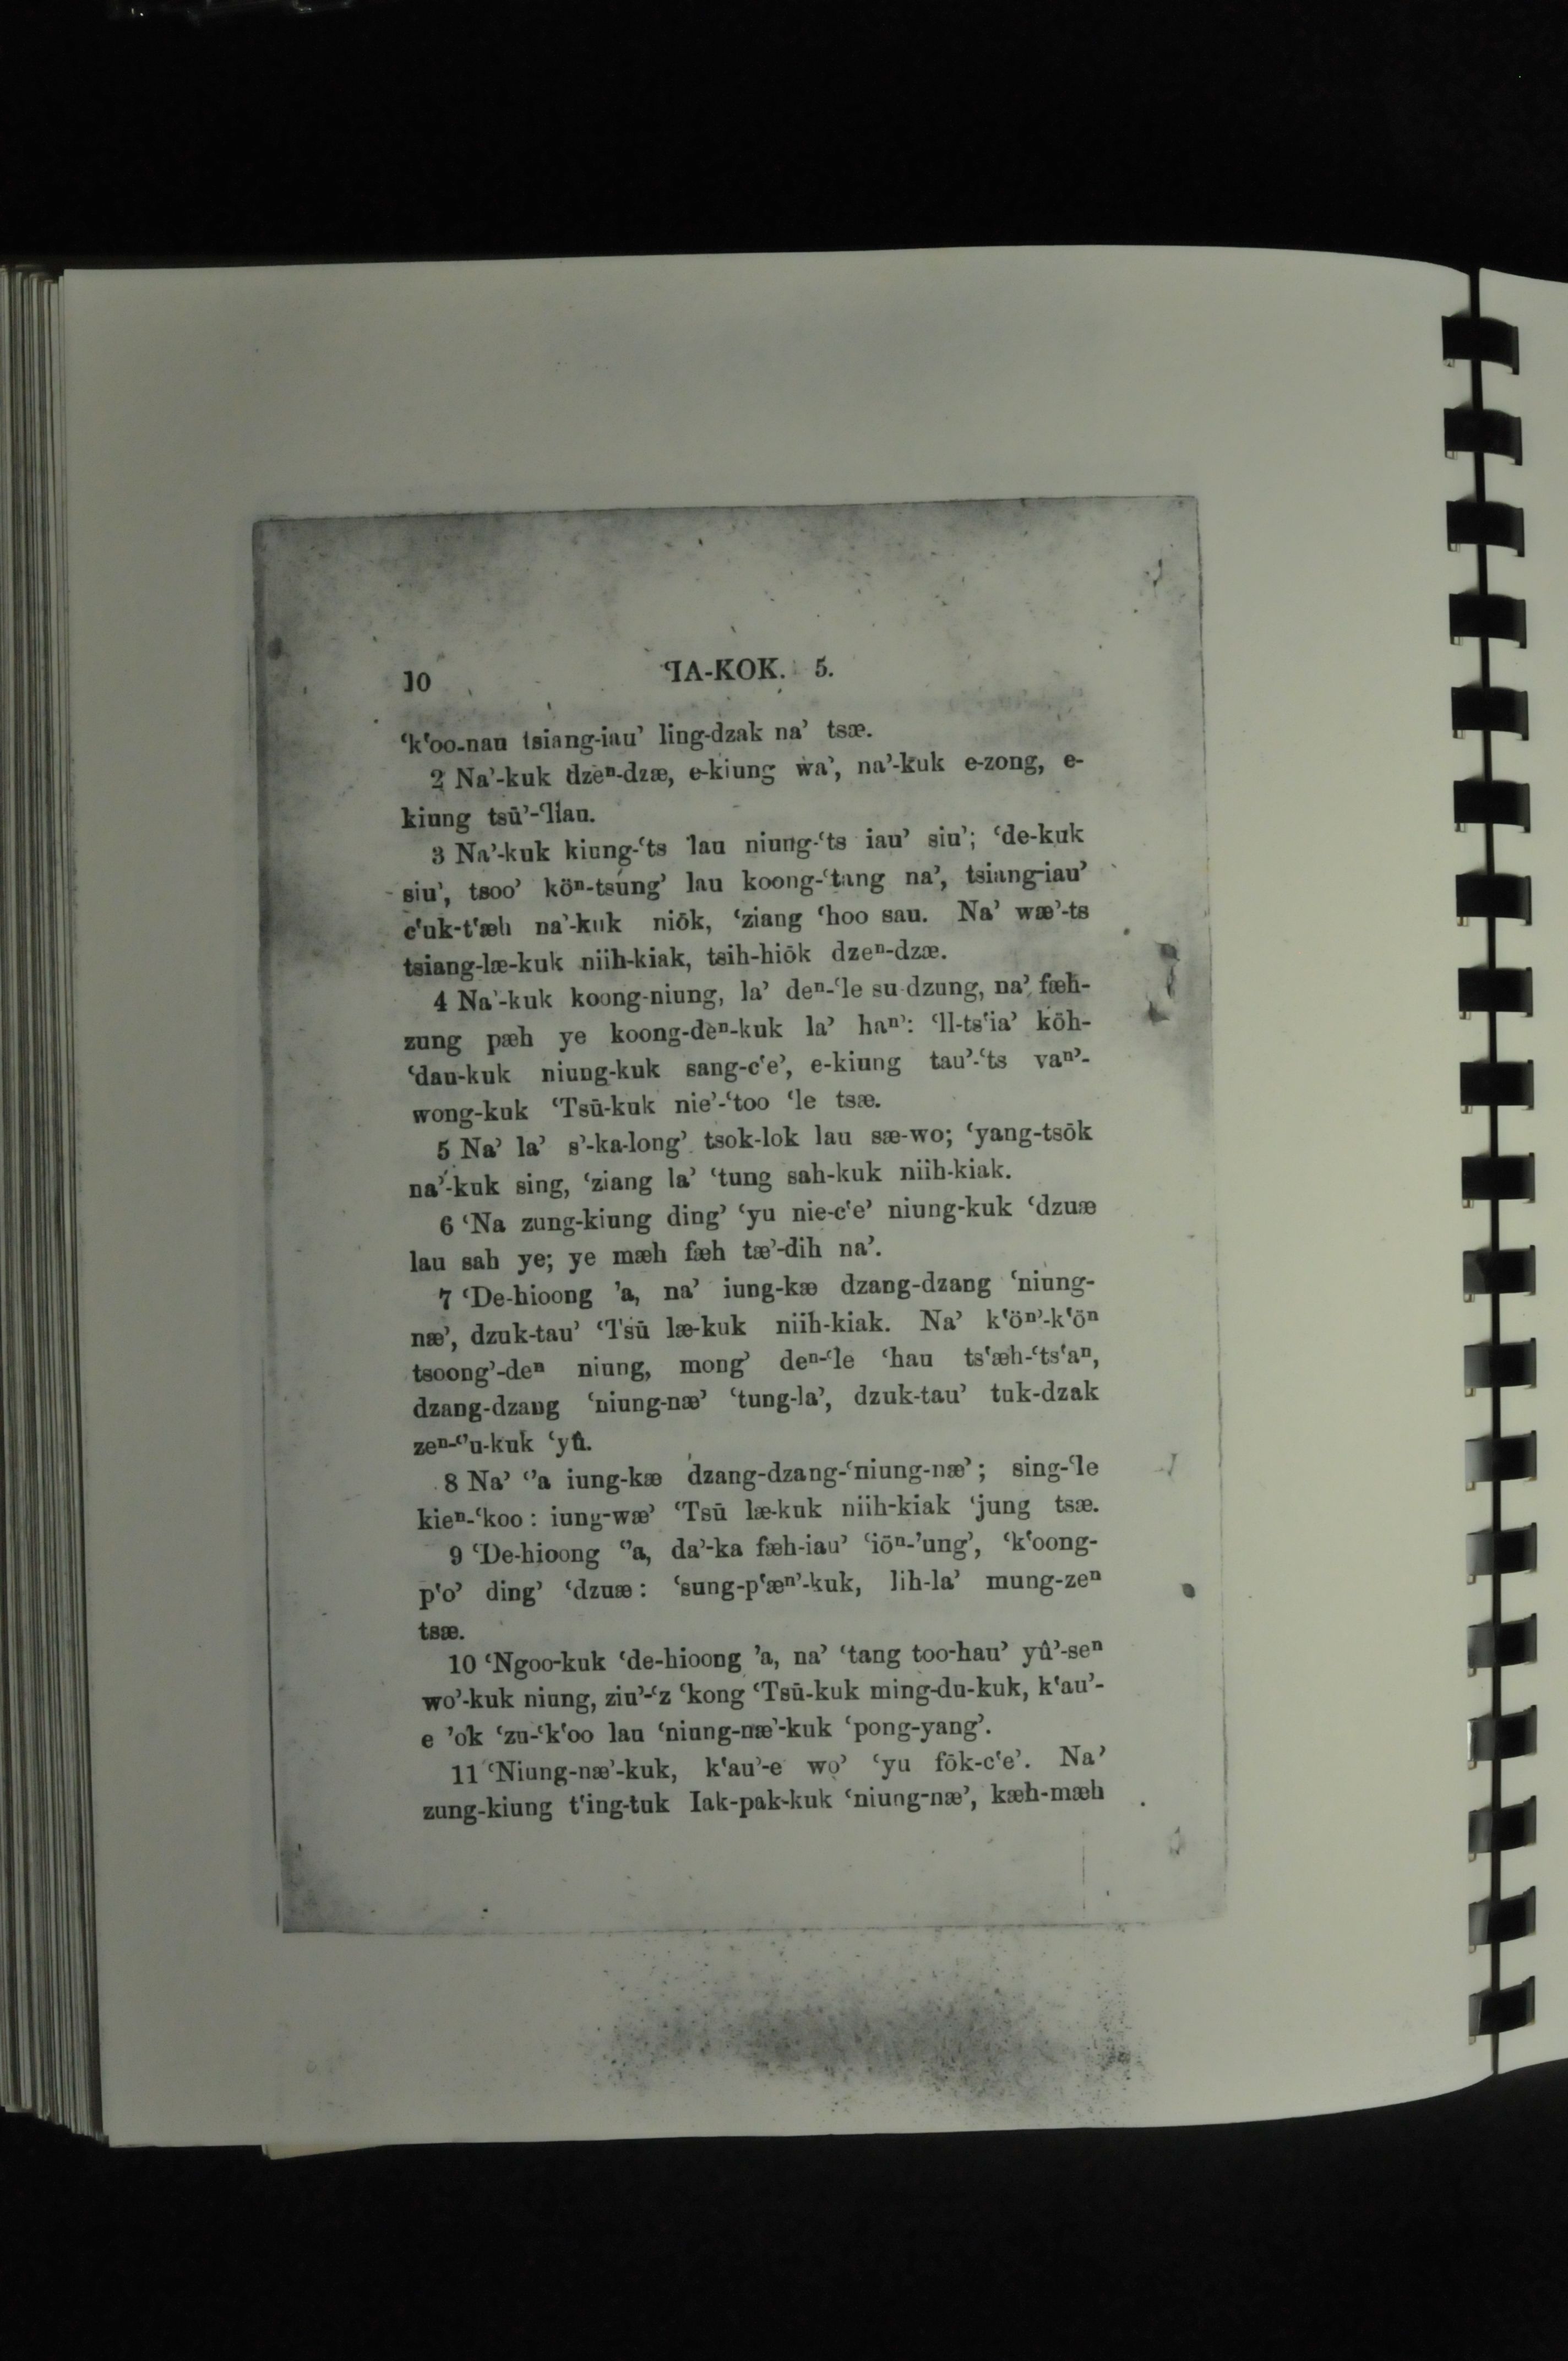 10 ‘IA-KOK. 5.
‘k‘oo-nan tsiang-iau’ ling-dzak na’ tsæ.
2 Na’-kuk dzeⁿ-dzæ, e-kiung wa’, na’-kuk e-zong, e-
kiung tsū’-‘liau.
3 Na’-kuk kiung-‘ts lau niung-‘ts iau’ siu’; ‘de-kuk
siu’, tsoo’ köⁿ-tsúng’ lau koong-‘tang na’, tsiang-iau’
c‘uk-t‘æh na’-kuk niōk, ‘ziang ‘hoo sau. Na’ wæ’-ts
tsiang-læ-kuk niih-kiak, tsih-hiōk dzeⁿ-dzæ.
4 Na’-kuk koong-niung, la’ deⁿ-‘le su-dzung, na’ fæh-
zung pæh ye koong-deⁿ-kuk la’ haⁿ’: ‘ll-ts‘ia’ köh-
‘dau-kuk niung-kuk sang-c‘e’, e-kiung tau’-‘ts vaⁿ’-
wong-kuk ‘Tsū-kuk nie’-‘too ‘le tsæ.
5 Na’ la’ s’-ka-long’ tsok-lok lau sæ-wo; ‘yang-tsōk
na’-kuk sing, ‘ziang la’ ‘tung sah-kuk niih-kiak.
6 ‘Na zung-kiung ding’ ‘yu nie-c‘e’ niung-kuk ‘dzuæ
lau sah ye; ye mæh fæh tæ’-dih na’.
7 ‘De-hioong ’a, na’ iung-kæ dzang-dzang ‘niung-
næ’, dzuk-tau’ ‘Tsū læ-kuk niih-kiak. Na’ k‘öⁿ’-k‘öⁿ
tsoong’-deⁿ niung, mong’ deⁿ-‘le ‘hau ts‘æh-‘ts‘aⁿ,
dzang-dzang ‘niung-næ’ ‘tung-la’, dzuk-tau’ tuk-dzak
zeⁿ-‘’u-kuk ‘yû.
8 Na’ ‘’a iung-kæ dzang-dzang-‘niung-næ’; sing-‘le
kieⁿ-‘koo: iung-wæ’ ‘Tsū læ-kuk niih-kiak ‘jung tsæ.
9 ‘De-hioong ‘’a, da’-ka fæh-iau’ ‘iöⁿ-’ung’, ‘k‘oong-
p‘o’ ding’ ‘dzuæ: ‘sung-p‘æⁿ’-kuk, lih-la’ mung-zeⁿ
tsæ.
10 ‘Ngoo-kuk ‘de-hioong ’a, na’ ‘tang too-hau’ yû’-seⁿ
wo’-kuk niung, ziu’-‘z ‘kong ‘Tsū-kuk ming-du-kuk, k‘au’-
e ’ok ‘zu-‘k‘oo lau ‘niung-næ’-kuk ‘pong-yang’.
11 ‘Niung-næ’-kuk, k‘au’-e wo’ ‘yu fōk-c‘e’. Na’
zung-kiung t‘ing-tuk Iak-pak-kuk ‘niung-næ’, kæh-mæh